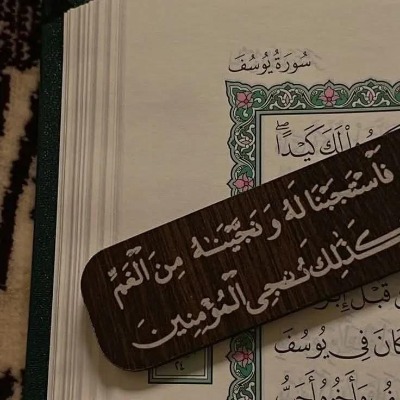 سُورَةُ يُوسُفَ
لَكَ كَيْدًا ۖ
فَاسْتَجَبْنَا لَهُ وَنَجَّيْنَاهُ مِنَ الْغَمِّ
كَذَٰلِكَ نُنجِي الْمُؤْمِنِينَ
كَانَ فِي يُوسُفَ
وَأَخُوهُ أَحَبُّ